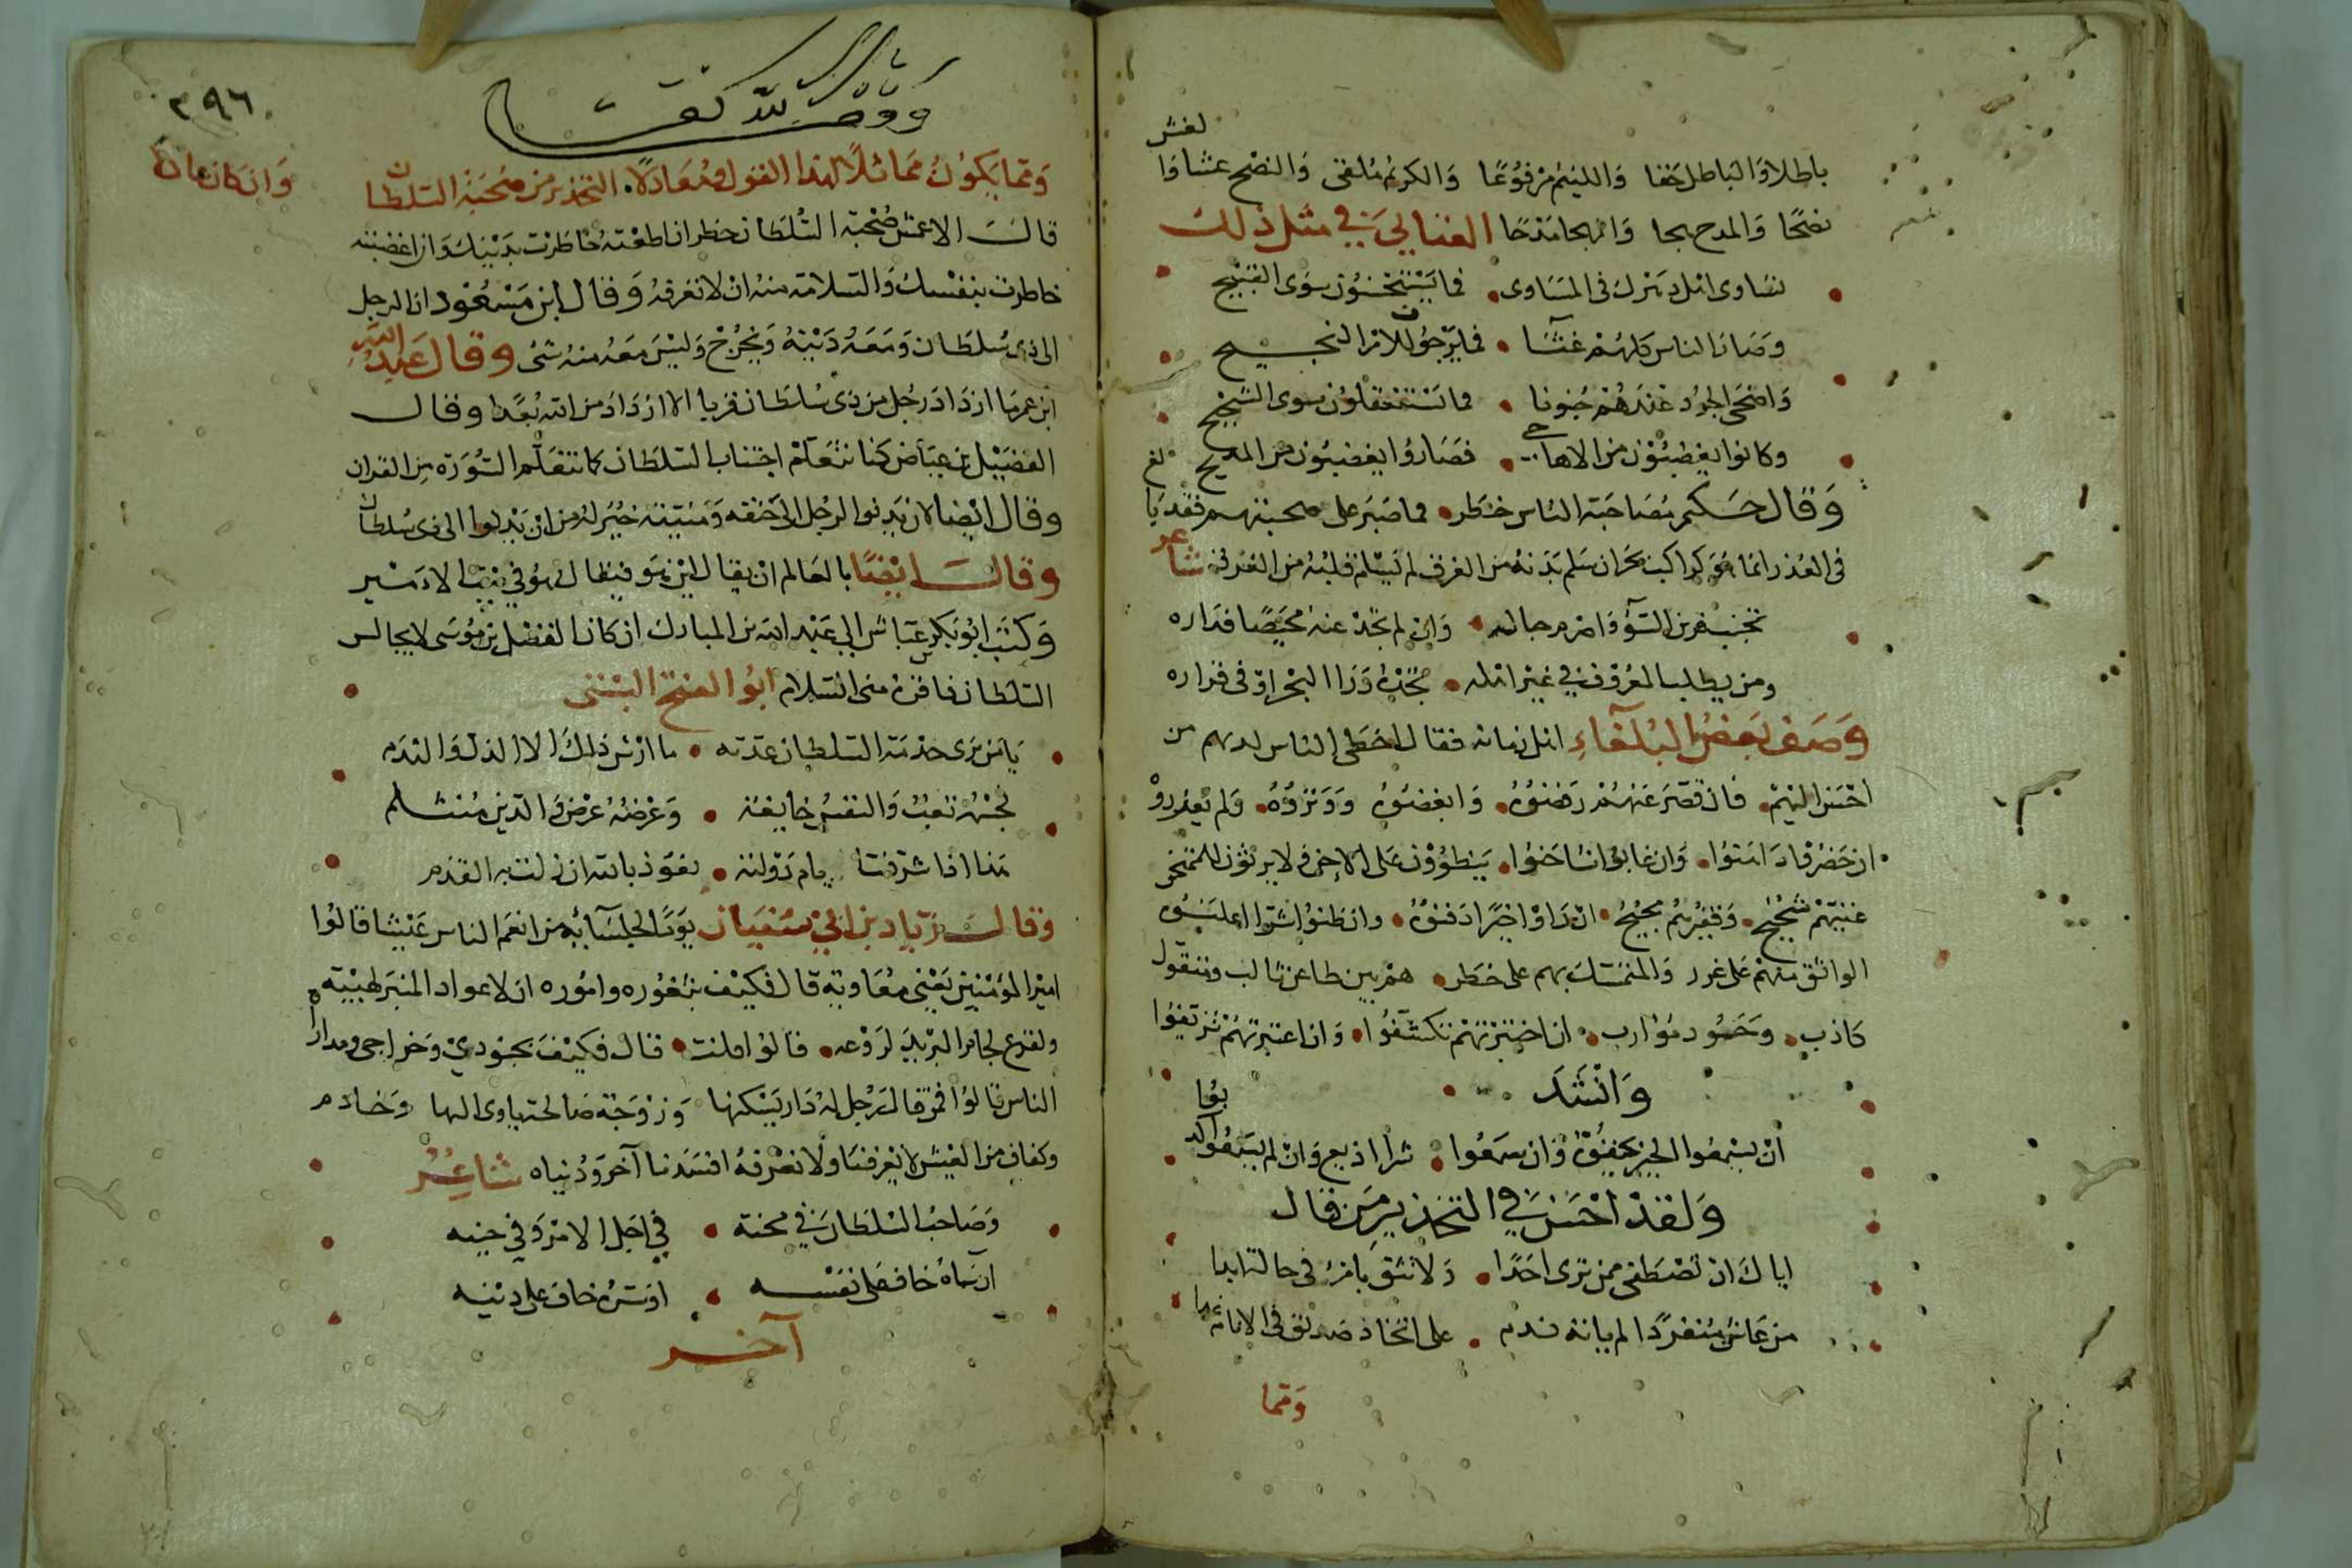 لغش
باطلا والباطل حقا واللئيم مرفوعا والكريم ملقى والنصح غشا وا
نصحا والمدح هجا والهجا مدحا العتابي في مثل ذلك
تساوى اهل دهرك في المساوى • فما يستحسنون سوى القبيح
وصار الناس كلهم غثا • فما يرجون للامر النجيح
واضحى الجود عندهم جنونا • فما تستعقلون سوى الشحيح
وكانوا يغضبون من الاهاجي • فصاروا يغضبون من المديح
وقال حكيم مصاحبة الناس خطر • فما صبر على صحبتهم فقد يا
في العذر انما هو كراكب بحر ان سلم بدنه من الغرق لم يسلم قلبه من الفرق شاعر
تجنب قرين السوء واصرم حباله • وان لم تجد عنه محيصا فداره
ومن يطلب المعروف في غير اهله • يجده ورا البحر او في قراره
وصف بعض البلغاء اهل زمانه فقال احظى الناس لديهم من
احسن اليهم • فان قصر عنهم رفضوه • وابغضوه • ولم يعذروه
ان حضر داهنوا • وان غاب
غنيهم شحيح • وفقيرهم • ان راوا خيرا دفنوه • وان ظنوا شرا اعلنوه
الواثق منهم على غرور والمتمسك بهم على خطر • هم بين طاعن ثالب ومتقول
كاذب • وحسود موارب • ان اختبرتهم تكشفوا • وان اعتبرتهم تزيفوا
وانشد
ان يسمعوا الخير يخفوه وان سمعوا • شرا اذيع وان لم يسمعوا كذبوا
ولقد احسن في التحذير من قال
اياك ان تصطفى ممن ترى احدا • ولا تثق بامرئ في حالة ابدا
من عاش منفردا لم ياته ندم • على اتخاذ صديق في الانام
ومما
٢٩٦
وقف لله تعالى
ومما يكون مماثلا لهذا القول ومعادلا • التحذير من صحبة السلطان وان كان عان
قال الاعمش صحبة السلطان خطر ان اطعته خاطرت بدينك وان اغضبته
خاطرت بنفسك والسلامة منه ان لا تعرفه وقال ابن مسعود ان الرجل
الى ذى سلطان ومعه دينه ويخرج وليس معه منه شى وقال عبد الله
ابن عمر ما ازداد رجل من ذى سلطان قربا الا ازداد من الله بعدا وقال
الفضيل بن عياض كنا نتعلم اجتناب السلطان كما نتعلم السورة من القران
وقال ايضا لان يدنو الرجل الى جيفة منتنة خير له من ان يدنوا الى ذى سلطان
وقال ايضا بالعالم ان يقال اين هو فيقال هو في بيت الامير
وكتب ابو بكر بن عياش الى عبد الله بن المبارك ان كان الفضل بن موسى لا يجالس
السلطان فاقره منى السلام ابو الفتح البستى
يا من يرى خدمة السلطان عدته • ما ارش ذلك الا الذل والندم
لجسمه تعب والنفس خايفة • وعرضه عرض والدين منثلم
هذا اذا اشرقت ايام دولته • نعوذ بالله ان زلت به القدم
وقال زياد بن ابى سفيان يوما لجلسائه من انعم الناس عيشا قالوا
امير المؤمنين يعنى معاوية قال فكيف بثغوره واموره ان لاعواد المنبر لهيبة
ولقرع لجام البريد لروعه • قالوا فانت • قال فكيف بجنودي وخراجى ومداراة
الناس قالوا فمن قال رجل له دار يسكنها وزوجة صالحة ياوى اليها وخادم
وكفاف من العيش لا يعرفنا ولا نعرفه افسدنا آخرته ودنياه شاعر
وصاحب السلطان في محنة • في اجل الامر وفي حينه
ان ساءه خاف على نفسه • او سره خاف على دينه
آخر